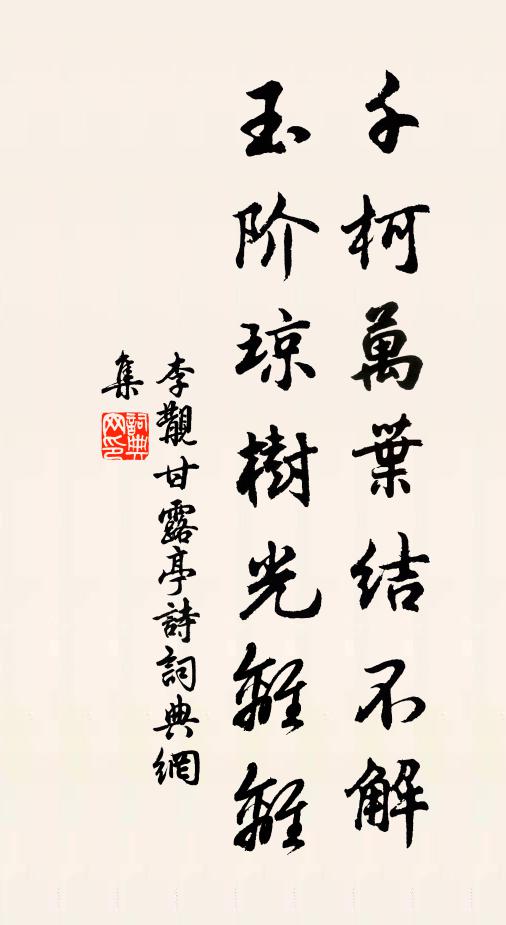 千柯萬葉結不解
玉阶琼樹光離離
李覯甘露亭詩詞典網
集
詞典
网印